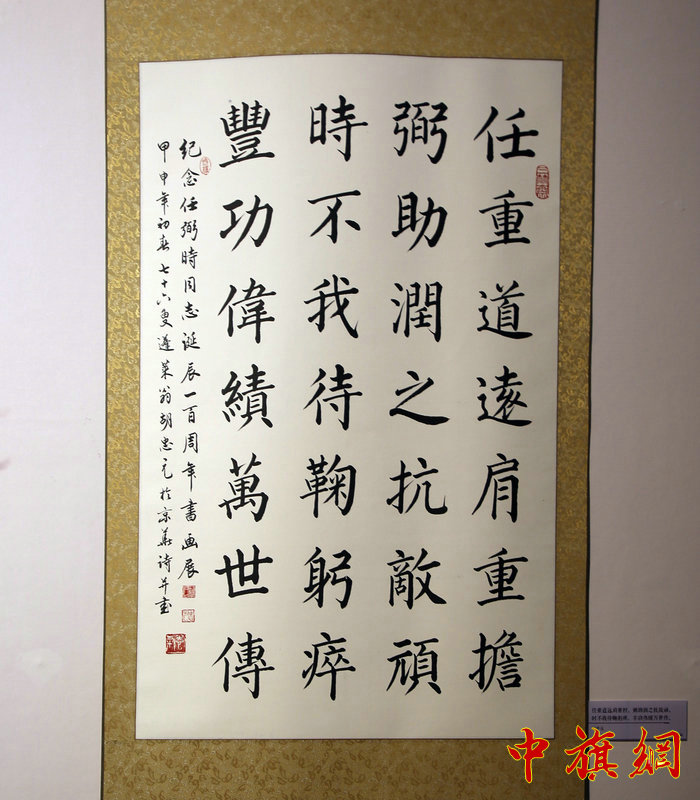 任重道遠肩重擔
弼助潤之抗敵頑
時不我待鞠躬瘁
豐功偉績萬世傳
紀念任弼時同志誕辰一百周年書画展
甲申年初春七十六叟蓬萊翁胡忠元於京華诗并書
中旗網